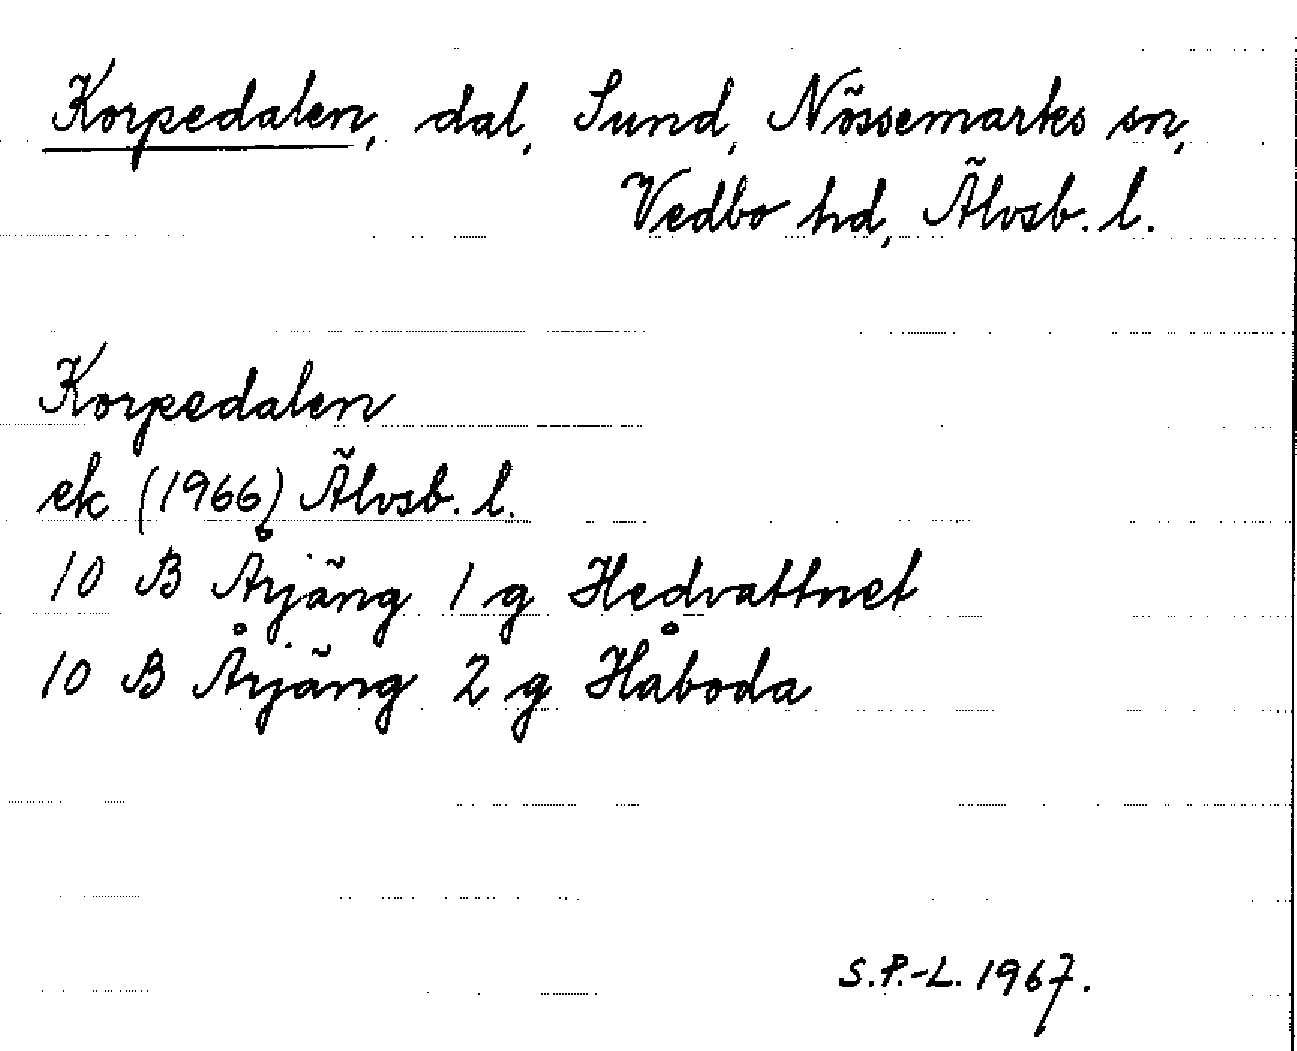 Korpedalen, dal, Sund, Nössemarks sn,
Vedbo hd, Älvsb. l.
Korpedalen
ek (1966) Älvsb. l.
10 B Årjäng 1 g Hedvattnet
10 B Årjäng 2 g Håboda
S.P.-L. 1967.